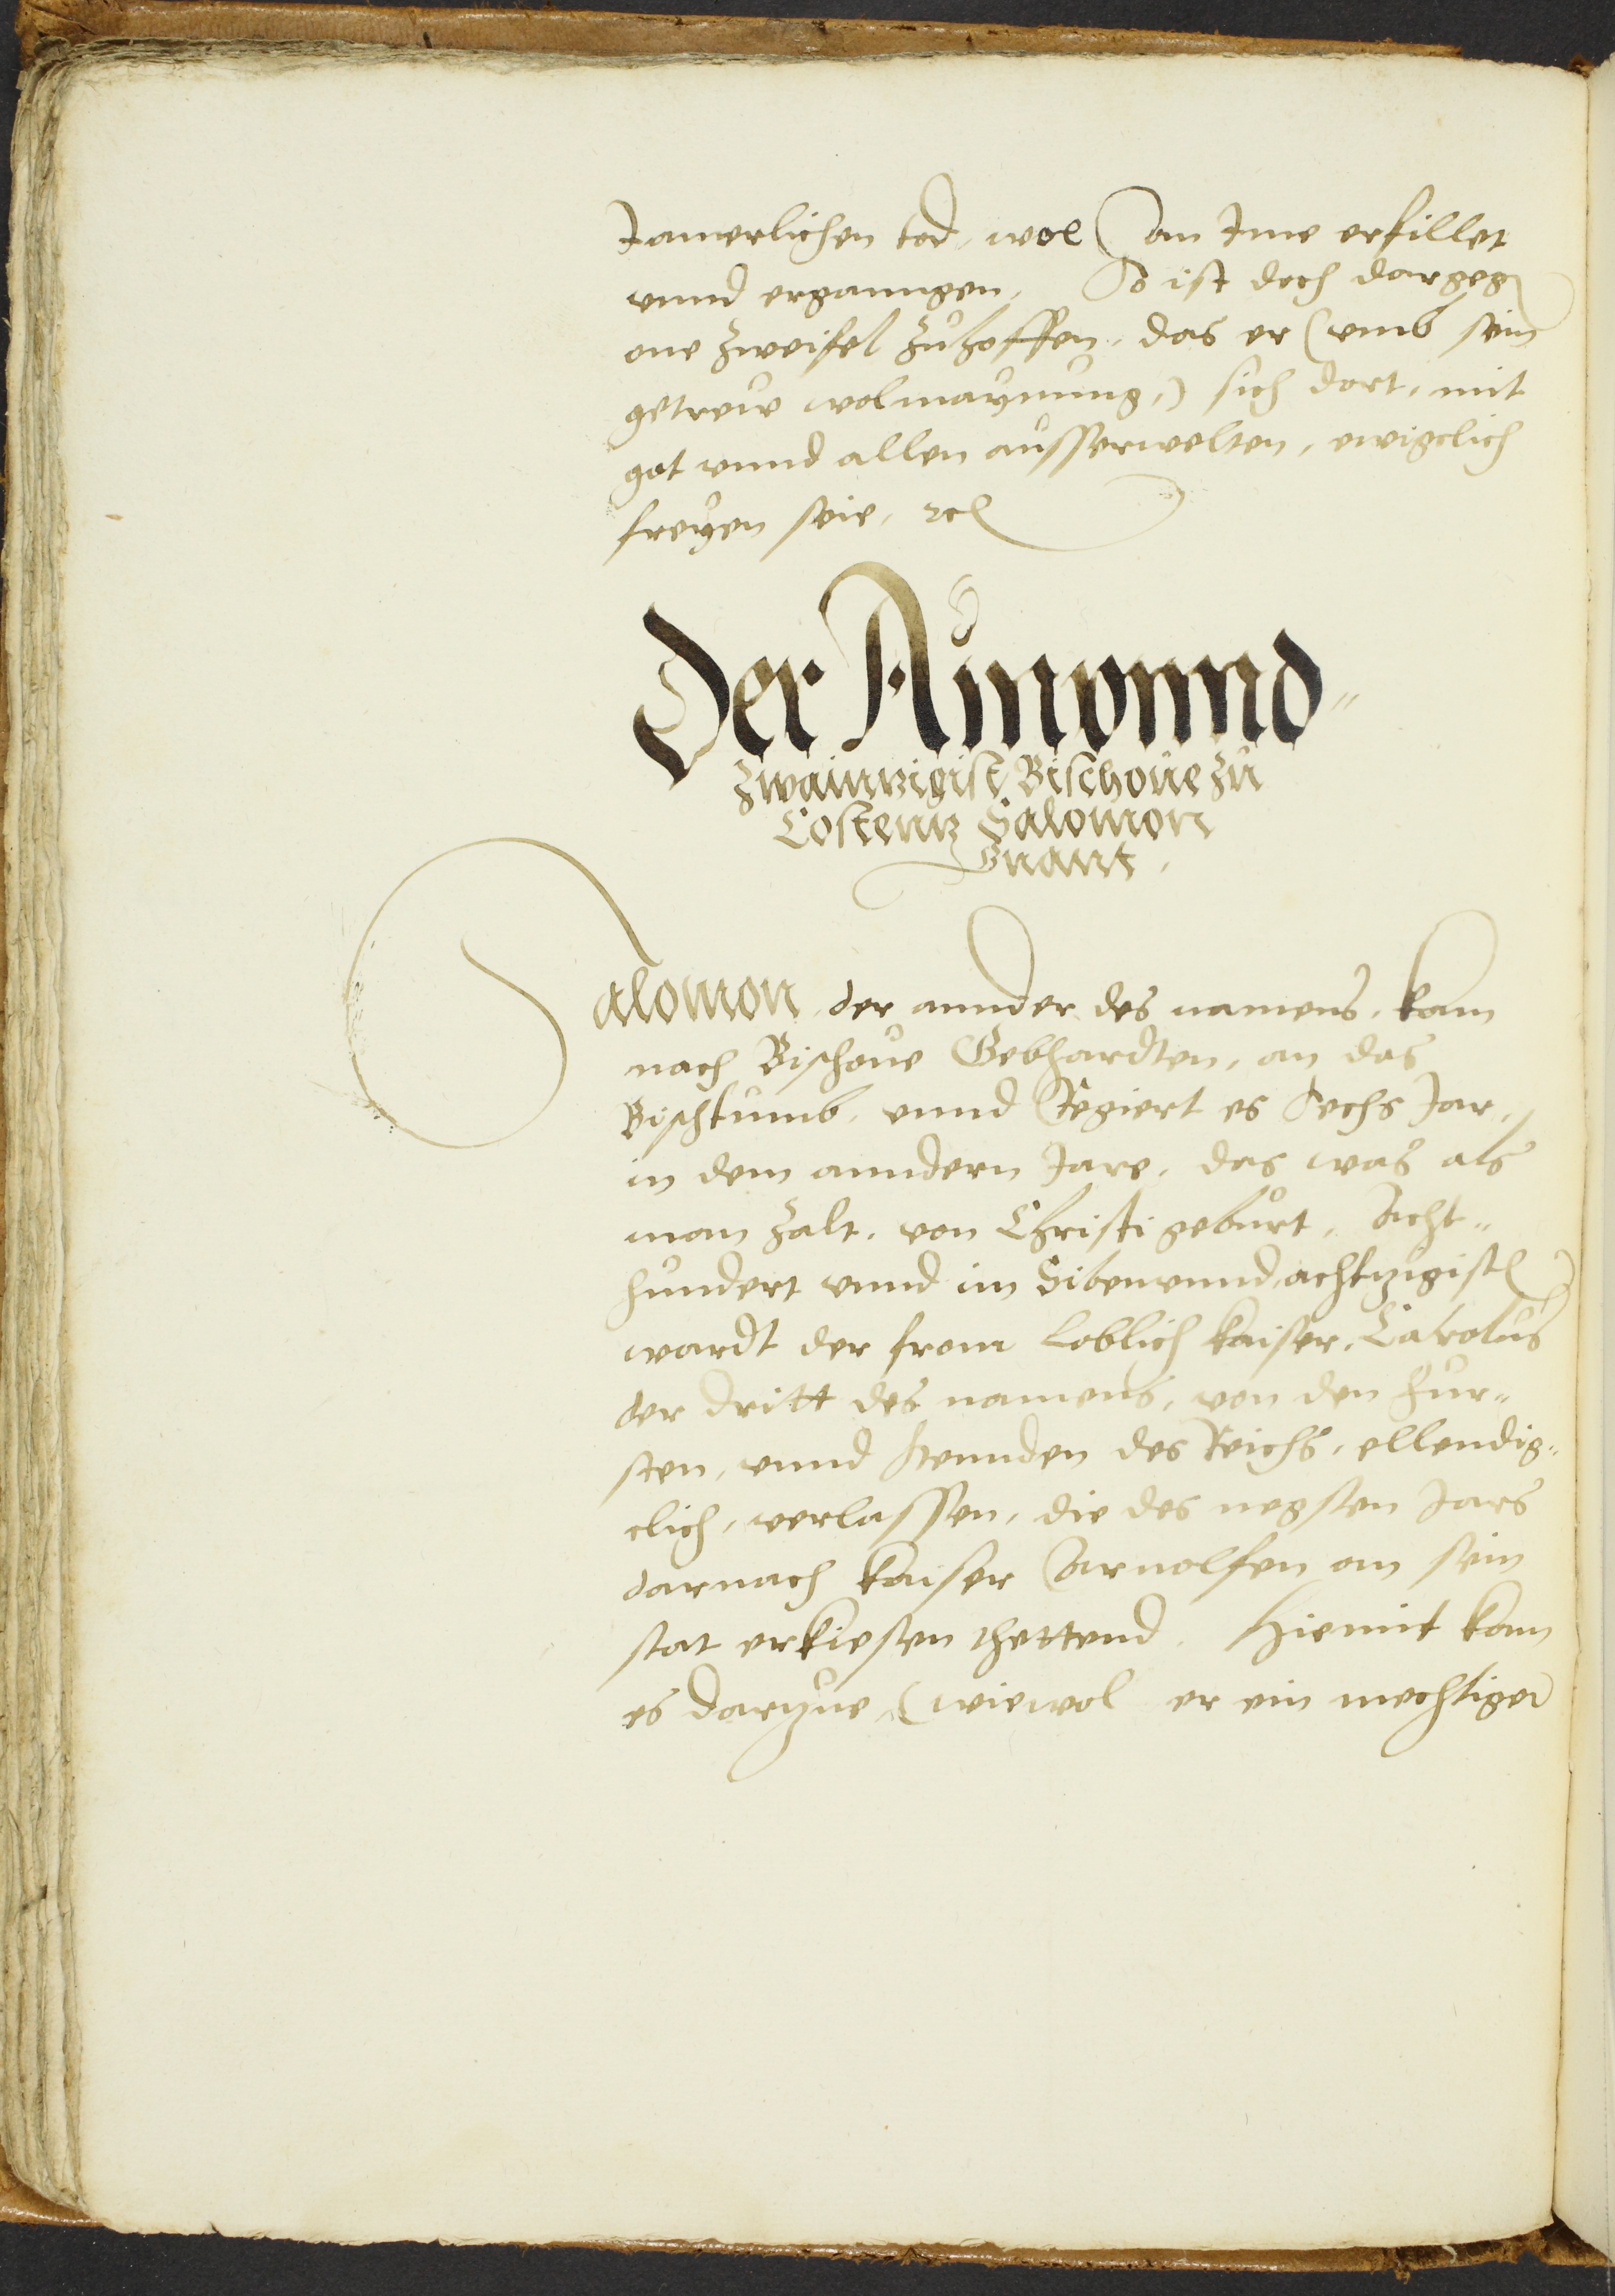 Jamerlichen tod, wol an Jme erfillet
vnnd erganngen, So ist doch dargeg
one zweifel zuhoffen, das er (vmb sein
getrew wolmaynung,) sich dort, mit
got vnnd allen ausserwelten, ewigclich
freyen seie, rc
Der Ainvnnd-
zwaintzigist Bischoue zu
Costentz Salomon
Gnant.
Salomon der annder des namens, kam
nach Bischoue Gebhardten, an das
Bischtumb, vnnd Regiert es Sechs Jar,
in dem anndern Jare, das was als
man zalt, von Christi geburt, Acht-
hundert vnnd im Sibenvnndachtzigist
wardt der from loblich kaiser, Carolus
der dritt des namens, von den Fur-
sten, vnnd Stennden des Reichs, ellendig-
clich, verlassen, die des negsten Jars
darnach kaiser Arnolfen an sein
stat erkiesen thettend. Hiemit kam
es dartzue, (wiewol er ein mechtiger